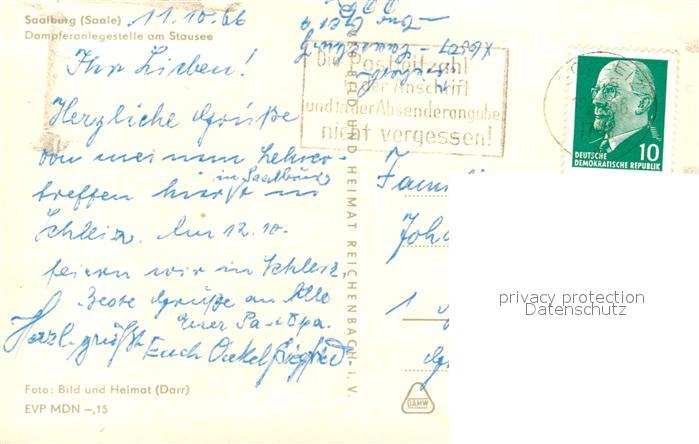 Saalburg (Saale) 11.10.66
Dampferanlegestelle am Stausee
Ihr Lieben!
Herzliche Grüße
von meinem Lehrer-
in Saalburg
treffen hier in
Schleiz. Am 12.10.
feiern wir in Schleiz.
Beste Grüße an Alle
Euer Pa-Opa.
Herzl. grüßt Euch Onkel Siegfried.
Foto: Bild und Heimat (Darr)
EVP MDN –,15
BILD UND HEIMAT REICHENBACH i. V.
DAMW
Die Postleitzahl
in der Anschrift
und in der Absenderangabe
nicht vergessen!
DEUTSCHE
DEMOKRATISCHE REPUBLIK
10
Famil
Joh
1
privacy protection
Datenschutz